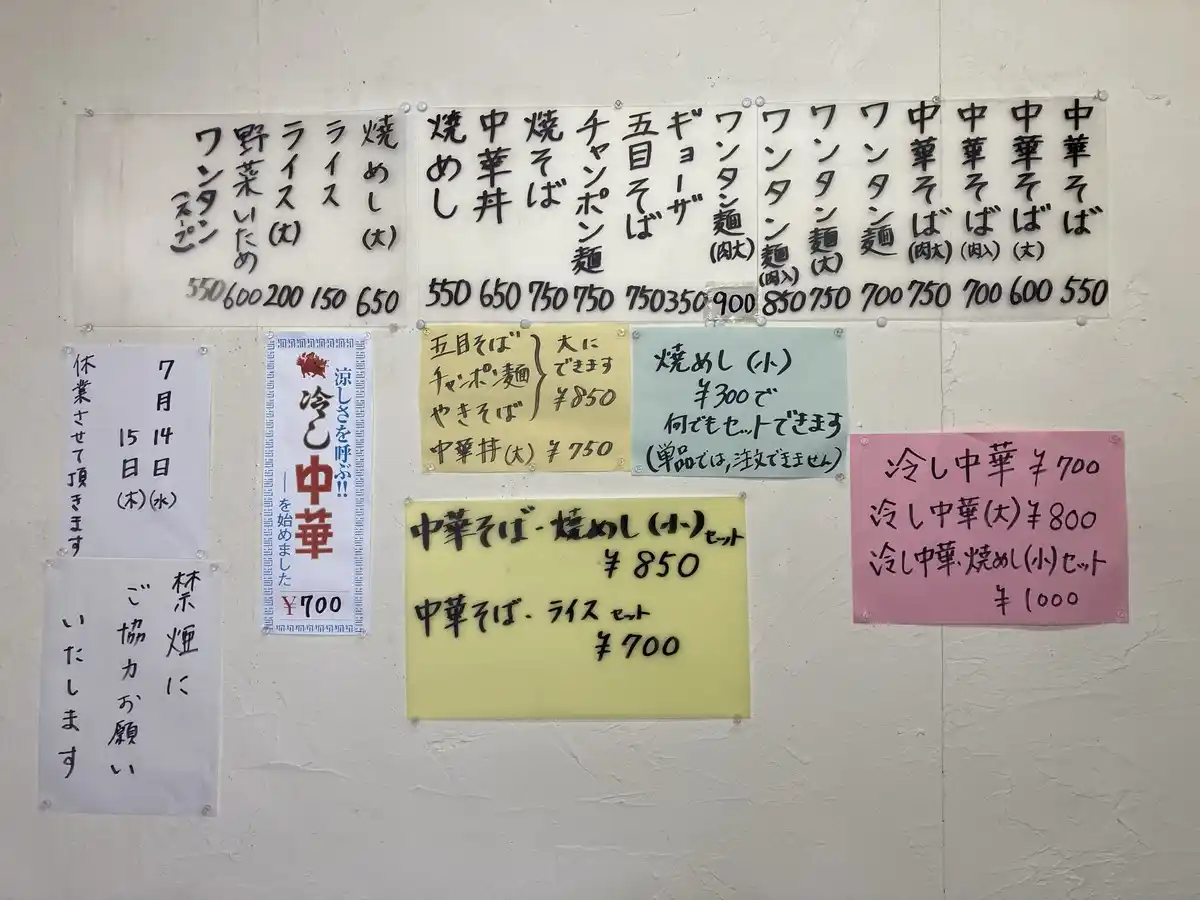 中華そば 550
中華そば(大) 600
中華そば(肉入) 700
中華そば(肉大) 750
ワンタン麺 700
ワンタン麺(大) 750
ワンタン麺(肉入) 850
ワンタン麺(肉大) 900
ギョーザ 350
五目そば 750
チャンポン麺 750
焼そば 750
中華丼 650
焼めし 550
焼めし(大) 650
ライス 150
ライス(大) 200
野菜いため 600
ワンタン(スープ) 550
7月14日(水)
15日(木)
休業させて頂きます
涼しさを呼ぶ!!
冷し中華
—を始めました
¥700
五目そば
チャンポン麺
やきそば
大に
できます
¥850
中華丼(大) ¥750
焼めし(小)
¥300で
何でもセットできます
(単品では,注文できません)
冷し中華 ¥700
冷し中華(大) ¥800
冷し中華・焼めし(小)セット
¥1000
中華そば-焼めし(小)セット
¥850
中華そば-ライスセット
¥700
禁煙に
ご協力お願い
いたします